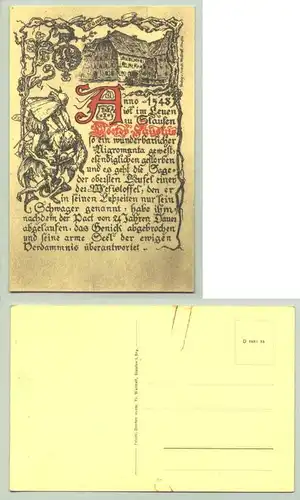 Anno 1548
ist im Leuen
zu Staufen
Doctor Faustus
so ein wunderbarlicher
Nigromanta gewest
elendiglichen gestorben
und es geht die Sage
der obersten Teufel einer
der Mefistoffel, den er
in seinen Lebzeiten nur sein
Schwager genannt, habe ihm
nachdem der Pact von 24 Jahren Dauer
abgelaufen, das Genick abgebrochen
und seine arme Seel der ewigen
Verdammnis überantwortet.